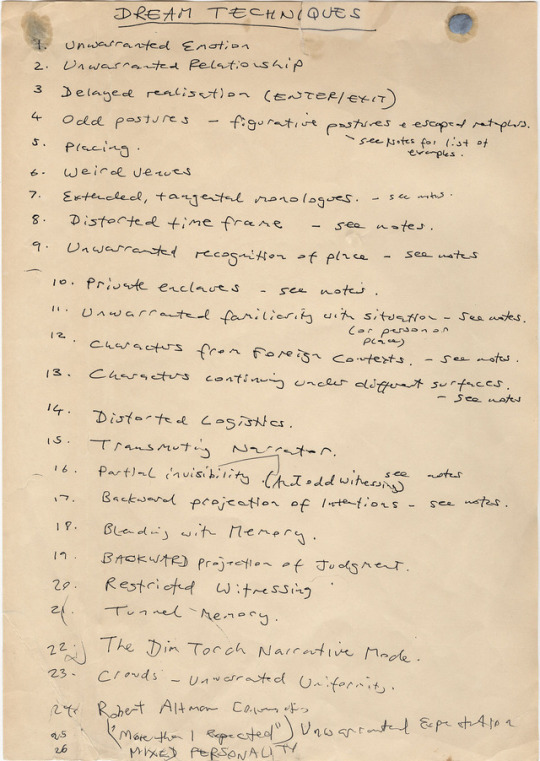 DREAM TECHNIQUES
1. Unwarranted Emotion
2. Unwarranted Relationship
3 Delayed realisation (ENTER/EXIT)
4 Odd postures - figurative postures + escaped metaphors.
- see Notes for list of
examples.
5. Placing.
6. Weird venues
7. Extended, tangental monologues. - see notes.
8. Distorted time frame - see notes.
9. Unwarranted recognition of place - see notes
10. Private enclaves - see notes.
11. Unwarranted familiarity with situation - see notes.
(or person or
place)
12. Characters from Foreign Contexts. - see notes.
13. Characters continuing under different surfaces.
- see notes
14. Distorted Logistics.
15. Transmuting Narrator.
16. Partial invisibility. (And odd witnessing) see notes
17. Backward projection of Intentions - see notes.
18. Blending with Memory.
19. BACKWARD projection of Judgment.
20. Restricted Witnessing
21. Tunnel Memory.
22. The Dim Torch Narrative Mode.
23. Crowds - Unwarranted Uniformity.
24. Robert Altman
25 ("More than I expected") Unwarranted Expectation
26 MIXED PERSONALITY